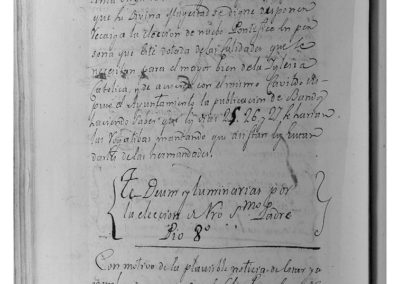 que Su Divina Magestad se digne disponer
recaiga la eleccion de nuebo Pontifice en per
sona que esté dotada de las calidades que se
necesitan para el mayor bien de la Yglesia
Catolica, y de acuerdo con el mismo Cavildo
el Ayuntamiento la publicacion de Bando
haciendo saber que los dias 25, 26, y 27 se harian
las Rogatibas
dantes de las hermandades.
Te Deum y luminarias por
la eleccion de Nro Smo Padre
Pio 8º
Con motivo de la plausible noticia de